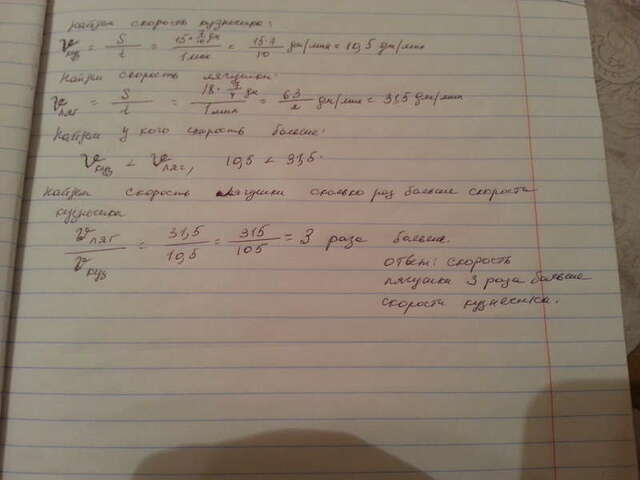 Найдем скорость кузнечика:
v куз = S/t = 15·7/10 дм / 1 мин = 15·7/10 дм/мин = 10,5 дм/мин
Найдем скорость лягушки:
v ляг = S/t = 18·7/4 дм / 1 мин = 63/2 дм/мин = 31,5 дм/мин
Найдем у кого скорость больше:
v куз < v ляг, 10,5 < 31,5.
Найдем скорость лягушки сколько раз больше скорости
кузнечика
v ляг / v куз = 31,5/10,5 = 315/105 = 3 раза больше.
ответ: скорость
лягушки 3 раза больше
скорости кузнечика.